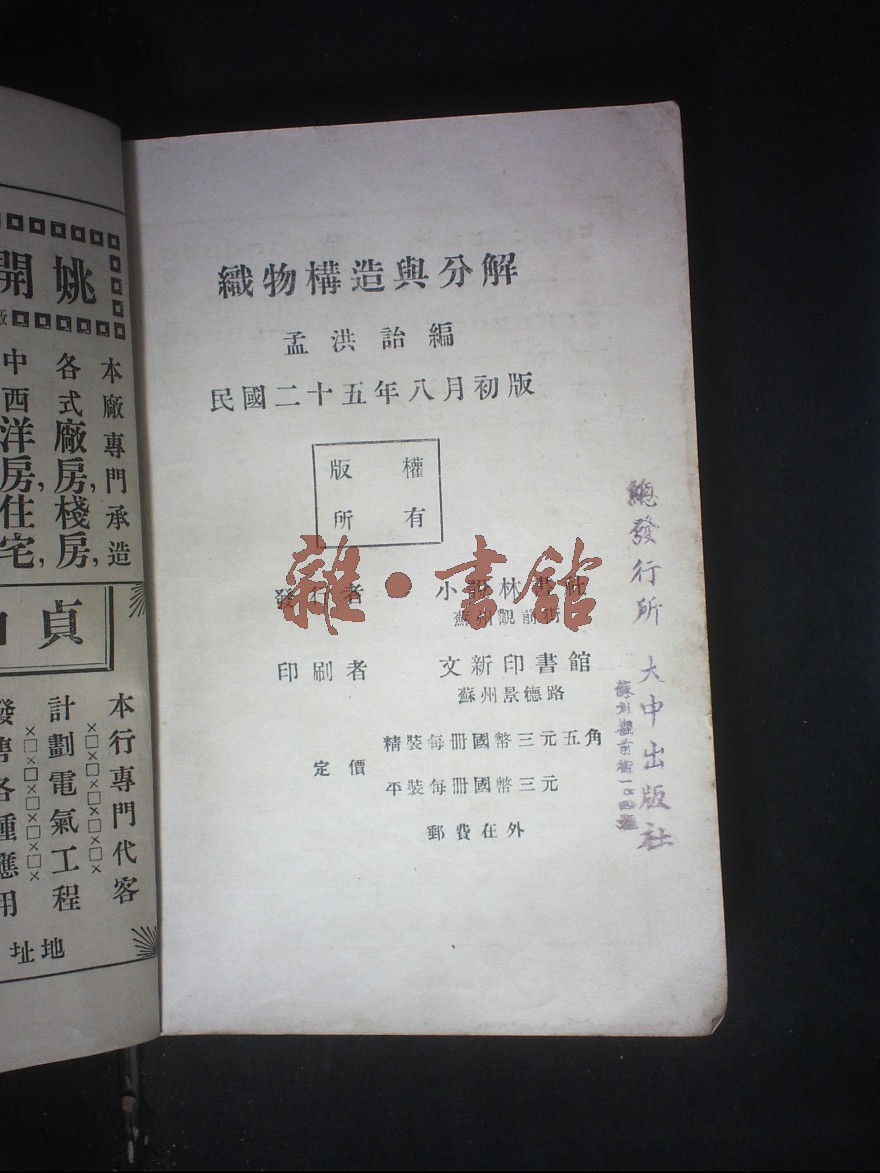 織物構造與分解
孟洪詒編
民國二十五年八月初版
版權
所有
發行者 小說林書社
蘇州觀前街
印刷者 文新印書館
蘇州景德路
定價
精裝每冊國幣三元五角
平裝每冊國幣三元
郵費在外
總發行所 大中出版社
蘇州觀前街一〇四號
雜·書館
姚開
本廠專門承造
各式廠房,棧房,
中西洋房,住宅,
貞
本行專門代客
計劃電氣工程
發售各種應用
地址